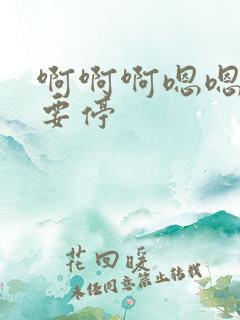 啊啊啊嗯嗯
要停
花回暖
未经同意禁止转载